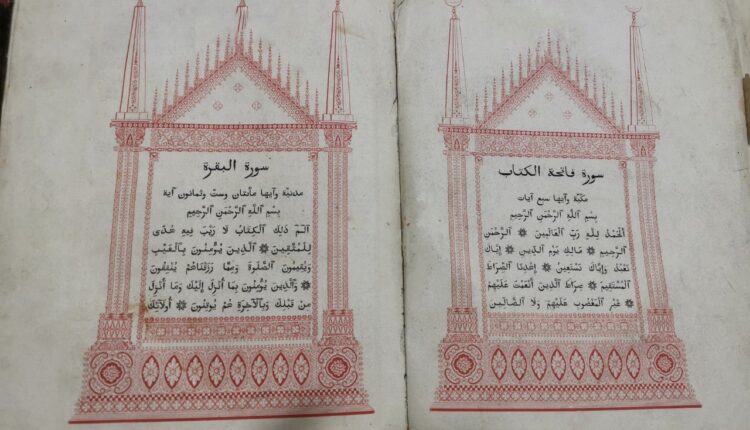 سورة فاتحة الكتاب
مكيّة وآيها سبع آيات
بِسْمِ ٱللَّهِ ٱلرَّحْمٰنِ ٱلرَّحِيمِ
ٱلْحَمْدُ لِلَّهِ رَبِّ ٱلْعَالَمِينَ ❋ ٱلرَّحْمٰنِ
ٱلرَّحِيمِ ❋ مَالِكِ يَوْمِ ٱلدِّينِ ❋ إِيَّاكَ
نَعْبُدُ وَإِيَّاكَ نَسْتَعِينُ ❋ إِهْدِنَا ٱلصِّرَاطَ
ٱلْمُسْتَقِيمَ ❋ صِرَاطَ ٱلَّذِينَ أَنْعَمْتَ عَلَيْهِمْ
❋ غَيْرِ ٱلْمَغْضُوبِ عَلَيْهِمْ وَلَا ٱلضَّالِّينَ
سورة البقرة
مدنيّة وآيها مأتان وستّ وثمانون آية
بِسْمِ ٱللَّهِ ٱلرَّحْمٰنِ ٱلرَّحِيمِ
الٓمٓ ذٰلِكَ ٱلْكِتَابُ لَا رَيْبَ فِيهِ هُدًى
لِلْمُتَّقِينَ ❋ ٱلَّذِينَ يُؤْمِنُونَ بِٱلْغَيْبِ
وَيُقِيمُونَ ٱلصَّلٰوةَ وَمِمَّا رَزَقْنَاهُمْ يُنْفِقُونَ
❋ وَٱلَّذِينَ يُؤْمِنُونَ بِمَا أُنْزِلَ إِلَيْكَ وَمَا أُنْزِلَ
مِنْ قَبْلِكَ وَبِٱلْآخِرَةِ هُمْ يُوقِنُونَ ❋ أُولٰئِكَ